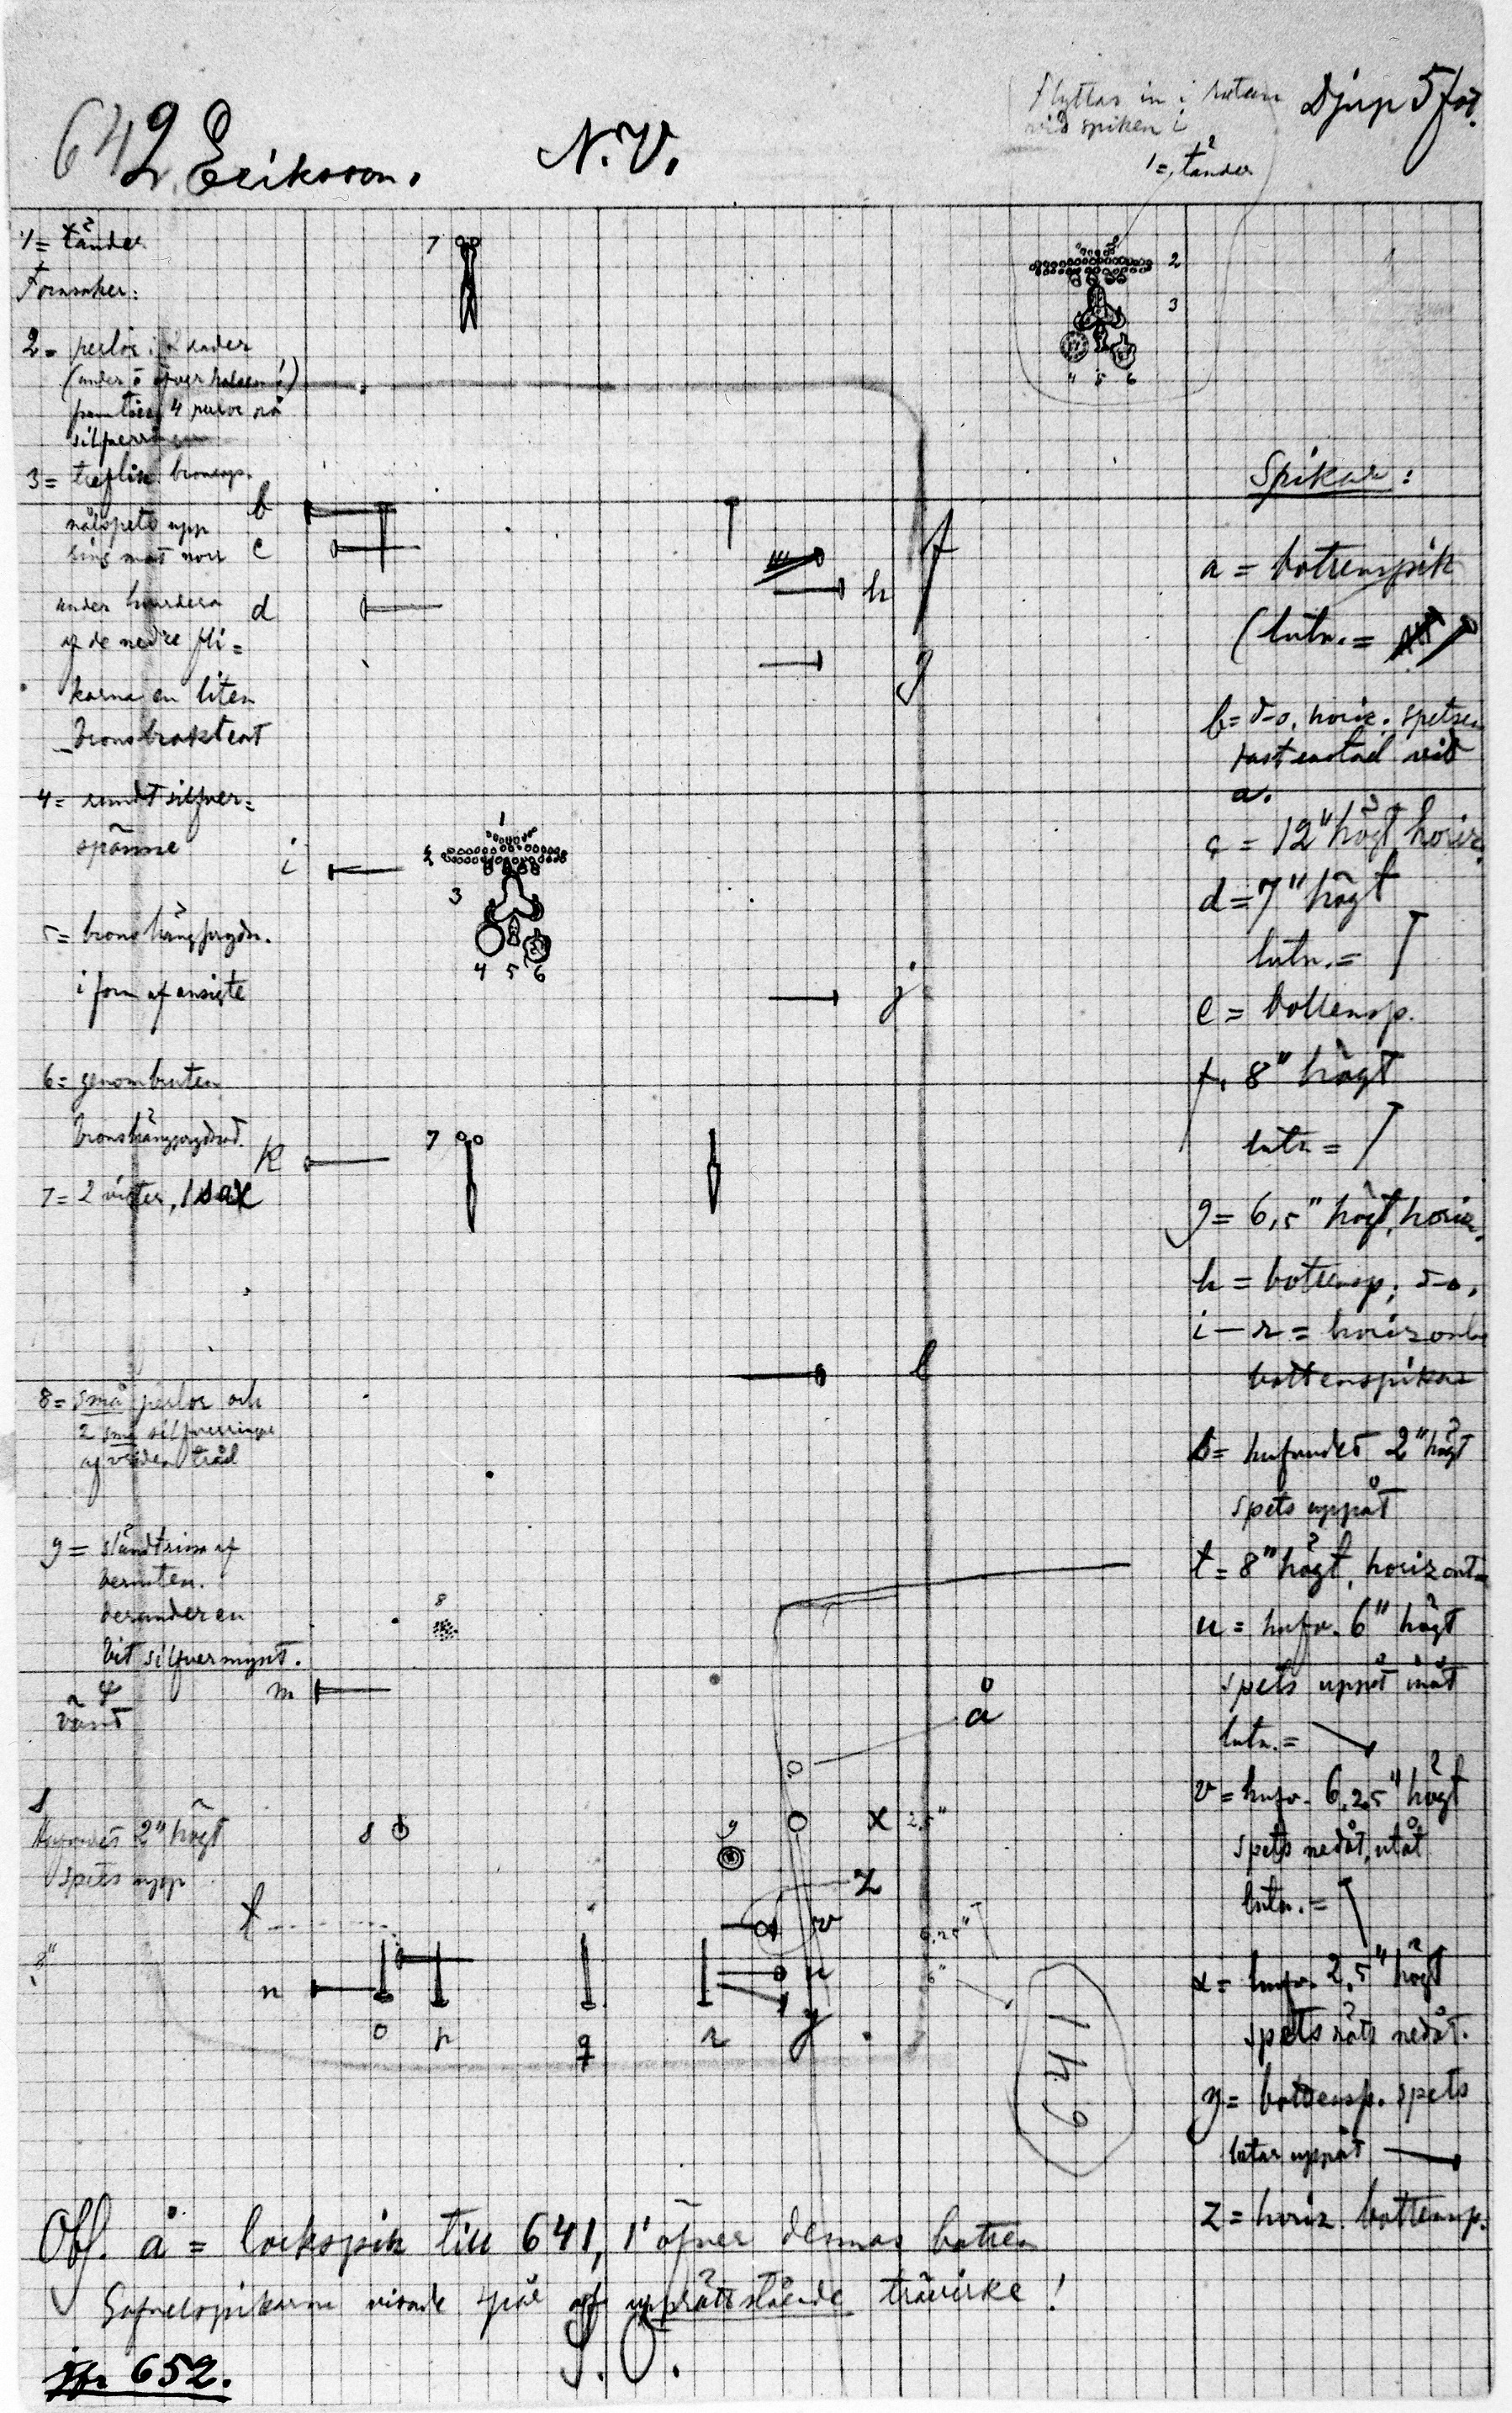 642 Eriksson.
N.V.
Flyttas in i rutan
vid spiken i
Djup 5 fot.
1 = tänder
1 = tänder
Fornsaker:
2 = perlor i rader
(under o över halsen!)
4
silfver
3 = treflik. bronssp.
nålspets upp
mot norr
under hvardera
af de nedre fli=
karna en liten
bronsbrakteat
4 = rundt silfver=
spänne
5 = bronshängprydn.
i form af ansigte
6 = genombruten
bronshängprydnad.
7 = 2 , 1 sax
8 = små perlor och
2 små silfverringar
af vriden tråd
9 = sländtrissa af
bernsten.
derunder en
bit silfvermynt.
s
Hufvudet 2" högt
spets upp
8"
7
2
3
4 5 6
b
c
d
f
h
g
1
2
3
4 5 6
i
j
k
7
l
8
m
å
s
9
x 2,5"
z
t
v
6,25"
n
u
6"
o
p
q
r
y
641
Spikar:
a = bottenspik
(lutn. =
b = d-o, horiz. spetsen
fastrostad vid
a.
c = 12" högt, horiz.
d = 7" högt
lutn. =
e = bottensp.
f. 8" högt
lutn =
g = 6,5" högt, horiz.
h = bottensp; d-o,
i — r = horizontl
bottenspikar
s = hufvudet 2" högt
spets uppåt
t = 8" högt, horizont=
u = hufv. 6" högt
spets uppåt inåt
lutn. =
v = hufv. 6,25" högt
spets nedåt, utåt
lutn. =
x = hufv. 2,5" högt
spets rätt nedåt.
y = bottensp. spets
lutar uppåt
z = horiz. bottensp.
Obs. å = lockspik till 641, 1' öfver dennas botten
Gafvelspikarne visade spår af upprättstående trävirke!
Jfr 652.